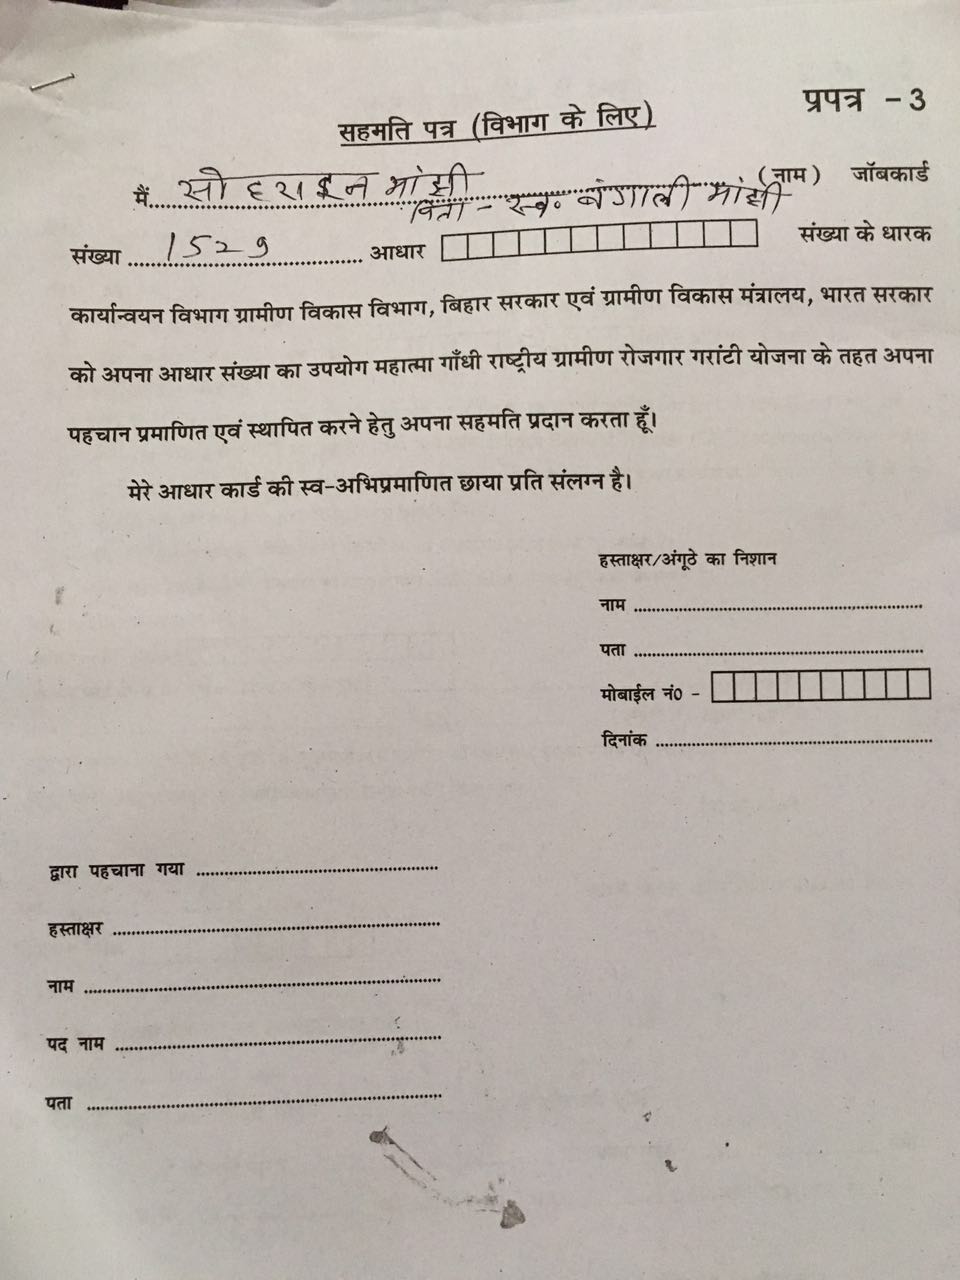 प्रपत्र - 3
सहमति पत्र (विभाग के लिए)
मैं सोहराइन मांझी (नाम) जॉबकार्ड
पिता - स्व॰ बंगाली मांझी
संख्या 1529 आधार संख्या के धारक
कार्यान्वयन विभाग ग्रामीण विकास विभाग, बिहार सरकार एवं ग्रामीण विकास मंत्रालय, भारत सरकार
को अपना आधार संख्या का उपयोग महात्मा गाँधी राष्ट्रीय ग्रामीण रोजगार गरांटी योजना के तहत अपना
पहचान प्रमाणित एवं स्थापित करने हेतु अपना सहमति प्रदान करता हूँ।
मेरे आधार कार्ड की स्व-अभिप्रमाणित छाया प्रति संलग्न है।
हस्ताक्षर/अंगूठे का निशान
नाम
पता
मोबाईल नं0 -
दिनांक
द्वारा पहचाना गया
हस्ताक्षर
नाम
पद नाम
पता